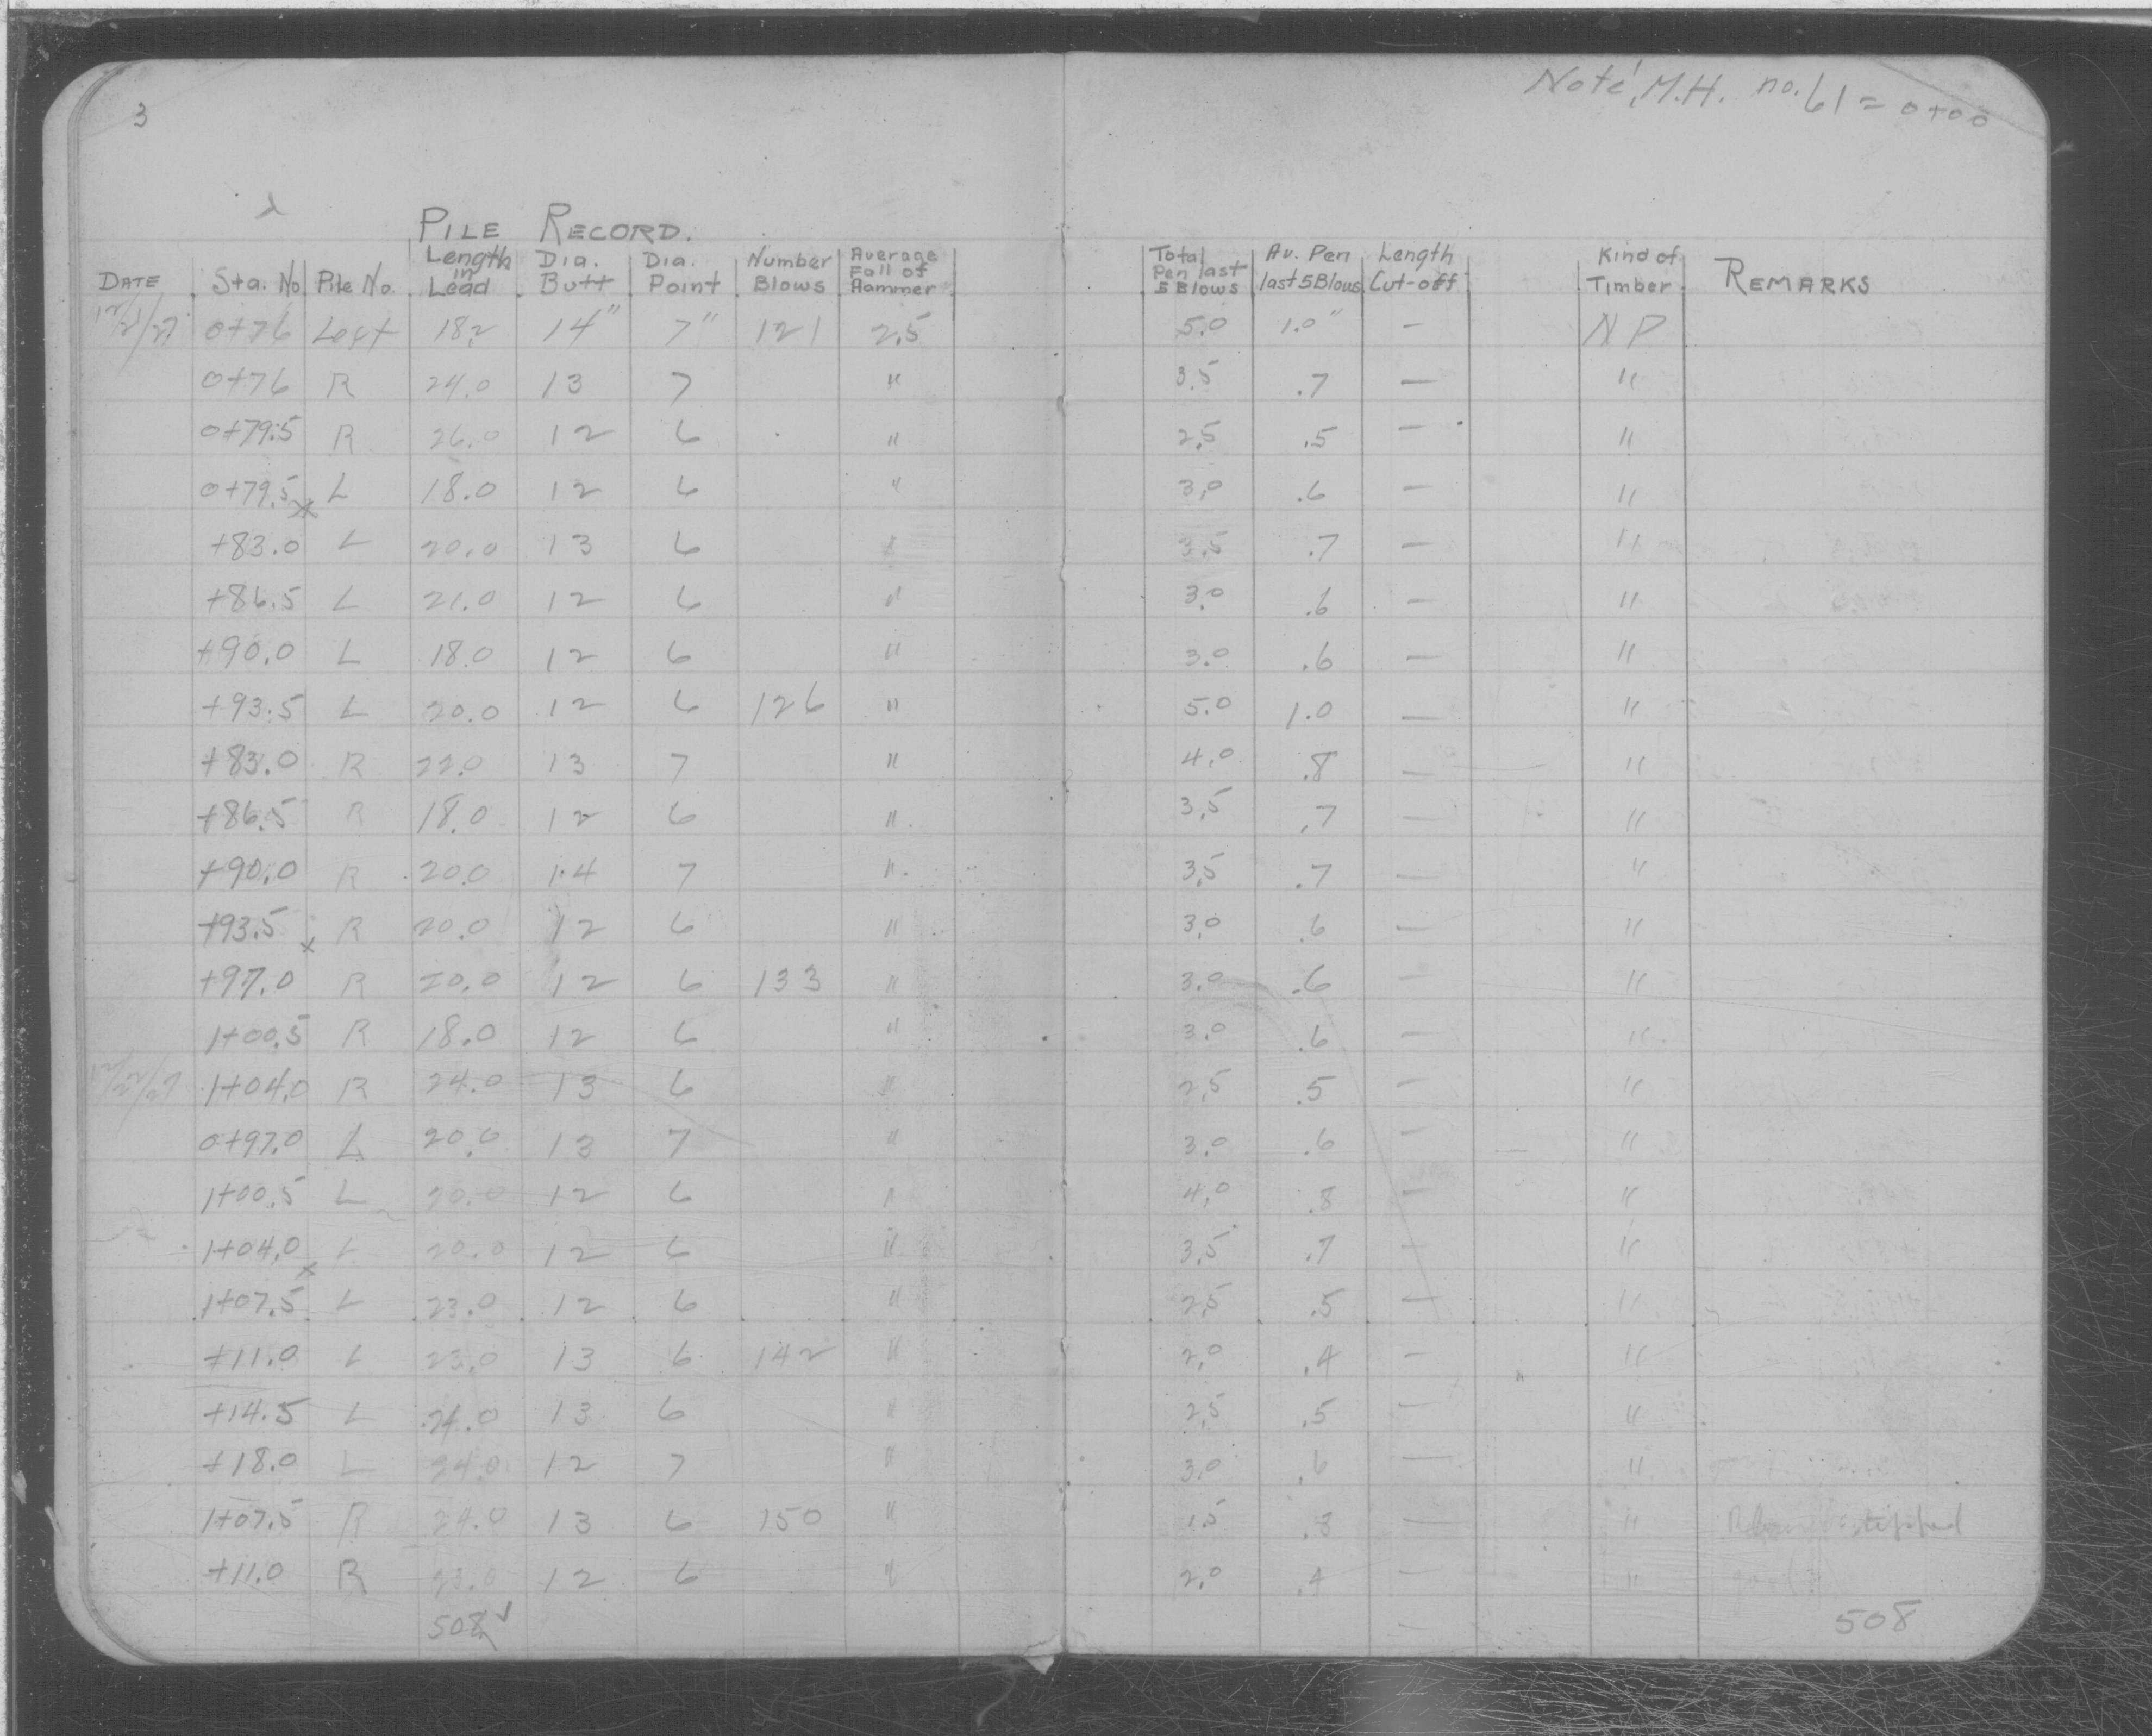 3
Note, M.H. no. 61 = 0+00
PILE RECORD.
DATE Sta. No Pile No. Length in Lead Dia. Butt Dia. Point Number Blows Average Fall of Hammer Total Pen last 5 Blows Av. Pen last 5 Blows Length Cut-off Kind of Timber REMARKS
12/21/27 0+76 Left 18.2 14" 7" 121 2.5 5.0 1.0" — NP
0+76 R 24.0 13 7 " 3.5 .7 — "
0+79.5 R 26.0 12 6 " 2.5 .5 — "
0+79.5 x L 18.0 12 6 " 3.0 .6 — "
+83.0 L 20.0 13 6 " 3.5 .7 — "
+86.5 L 21.0 12 6 " 3.0 .6 — "
+90.0 L 18.0 12 6 " 3.0 .6 — "
+93.5 L 20.0 12 6 126 " 5.0 1.0 — "
+83.0 R 22.0 13 7 " 4.0 .8 — "
+86.5 R 18.0 12 6 " 3.5 .7 — "
+90.0 R 20.0 14 7 " 3.5 .7 — "
+93.5 x R 20.0 12 6 " 3.0 .6 — "
+97.0 R 20.0 12 6 133 " 3.0 .6 — "
1+00.5 R 18.0 12 6 " 3.0 .6 — "
12/22/27 1+04.0 R 24.0 13 6 " 2.5 .5 — "
0+97.0 L 20.0 13 7 " 3.0 .6 — "
1+00.5 L 20.0 12 6 " 4.0 .8 — "
1+04.0 x L 20.0 12 6 " 3.5 .7 — "
1+07.5 L 23.0 12 6 " 2.5 .5 — "
+11.0 L 23.0 13 6 142 " 2.0 .4 — "
+14.5 L 24.0 13 6 " 2.5 .5 — "
+18.0 L 24.0 12 7 " 3.0 .6 — "
1+07.5 R 24.0 13 6 150 " 1.5 .3 — "
+11.0 R 23.0 12 6 " 2.0 .4 — "
508 ✓ 508